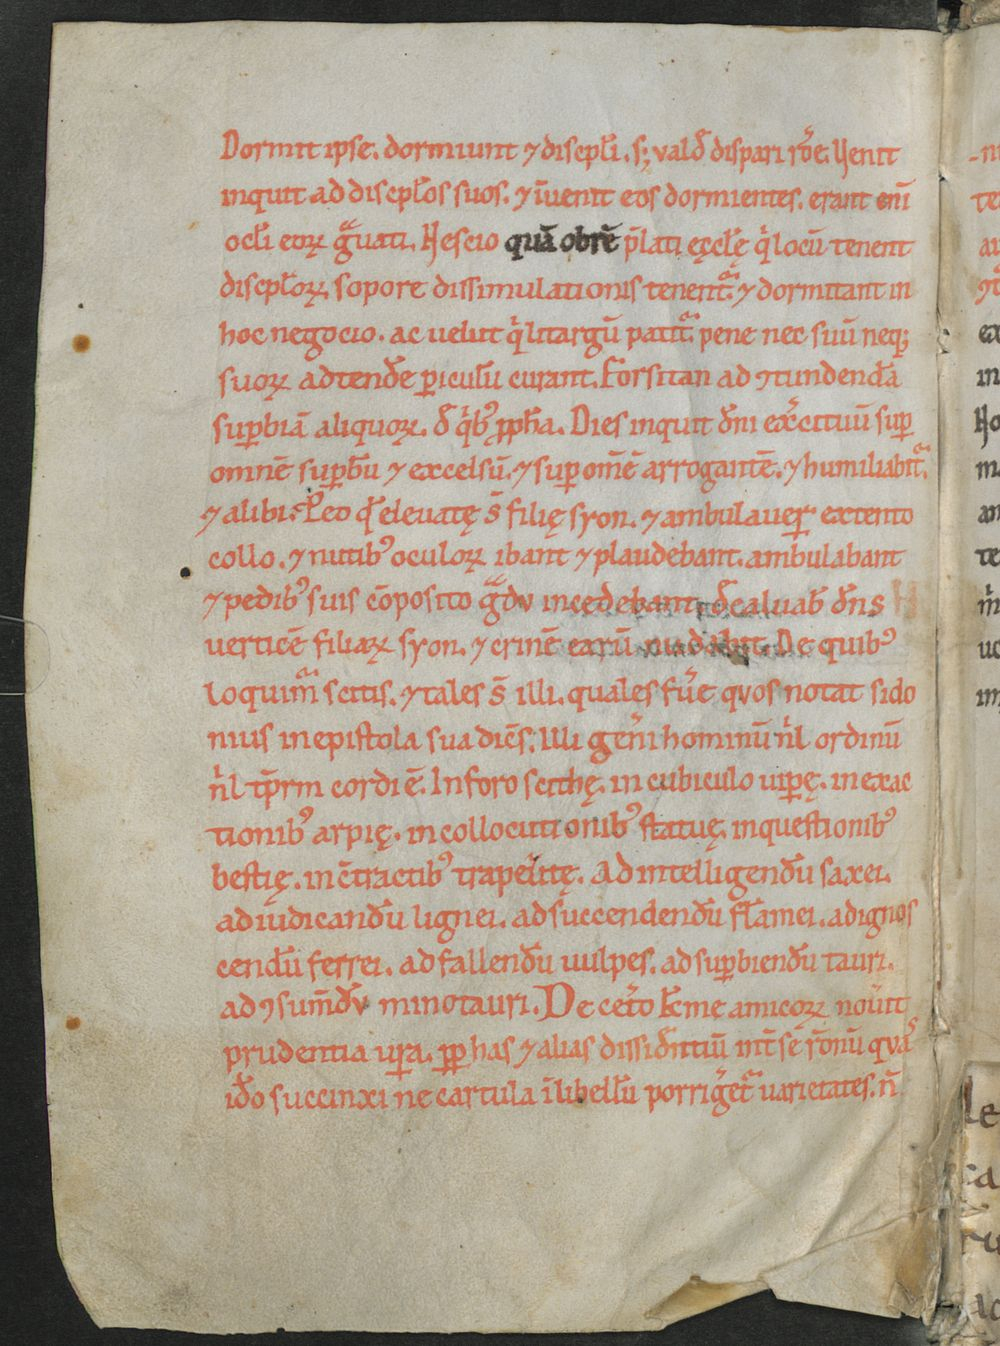 Dormit ipse. dormiunt ⁊ discipl̄i. s; vald̄ dispari rōe. Uenit
inquit ad discipl̄os suos. ⁊ īuenit eos dormientes. erant eni̅
ocl̄i eoꝝ gͣuati. Nescio quā ob rē p̄lati ęcclę qͥ locū tenent
discipl̄oꝝ sopore dissimulationis tenentͬ. ⁊ dormitant in
hoc negocio. ac uelut qͥ litargū patitͬ. pene nec suū neq;
suoꝝ adtend̄e piculū̄ curant. Forsitan ad ꝯtundendā
suꝑbiā aliquoꝝ. d̄ qͥbꝰ ꝓph̄a. Dies inquit dn̄i ex̄cituū suꝑ
omnē suꝑbū ⁊ excelsū. ⁊ suꝑ om̄ē arrogantē. ⁊ humiliabitͬ.
⁊ alibi. Pro eo qd̄ eleuatę s̄ filię syon. ⁊ ambulauer̄ extento
collo. ⁊ nutibꝰ oculoꝝ ibant ⁊ plaudebant. ambulabant
⁊ pedibꝰ suis cōposito gͣdu incedebant. decaluab̄ dn̄s
verticē filiaꝝ syon. ⁊ crinē earū nudabit. De quibꝰ
loquimͬ scitis. ⁊ tales s̄ illi. quales fūe quos notat sido
nius in epistola sua diēs; Illi gen̄i hominū nͥl ordinū
nͥl t̄p̄rm cordi ē. In foro scithę. in cubiculo uiꝑę. in exac
tionibꝰ arpię. in collocutionibꝰ statuę. in questionibꝰ
bestię. in c̄tractibꝰ trapezitę. Ad intelligendū saxei.
ad iudicandū lignei. ad succendendū flamei. ad ignos
cendū ferrei. ad fallendū uulpes. ad suꝑbiendū tauri.
ad ꝯsum̄dū minotauri. De cet̄o kme amicoꝝ nou̅it
prudentia ur̄a. ꝑ has ⁊ alias dissid̄ntiū int̄ se r̄onū quas
id̄o succinxi ne cartula ī libellū porrig̅etͬ uarietates. n̄